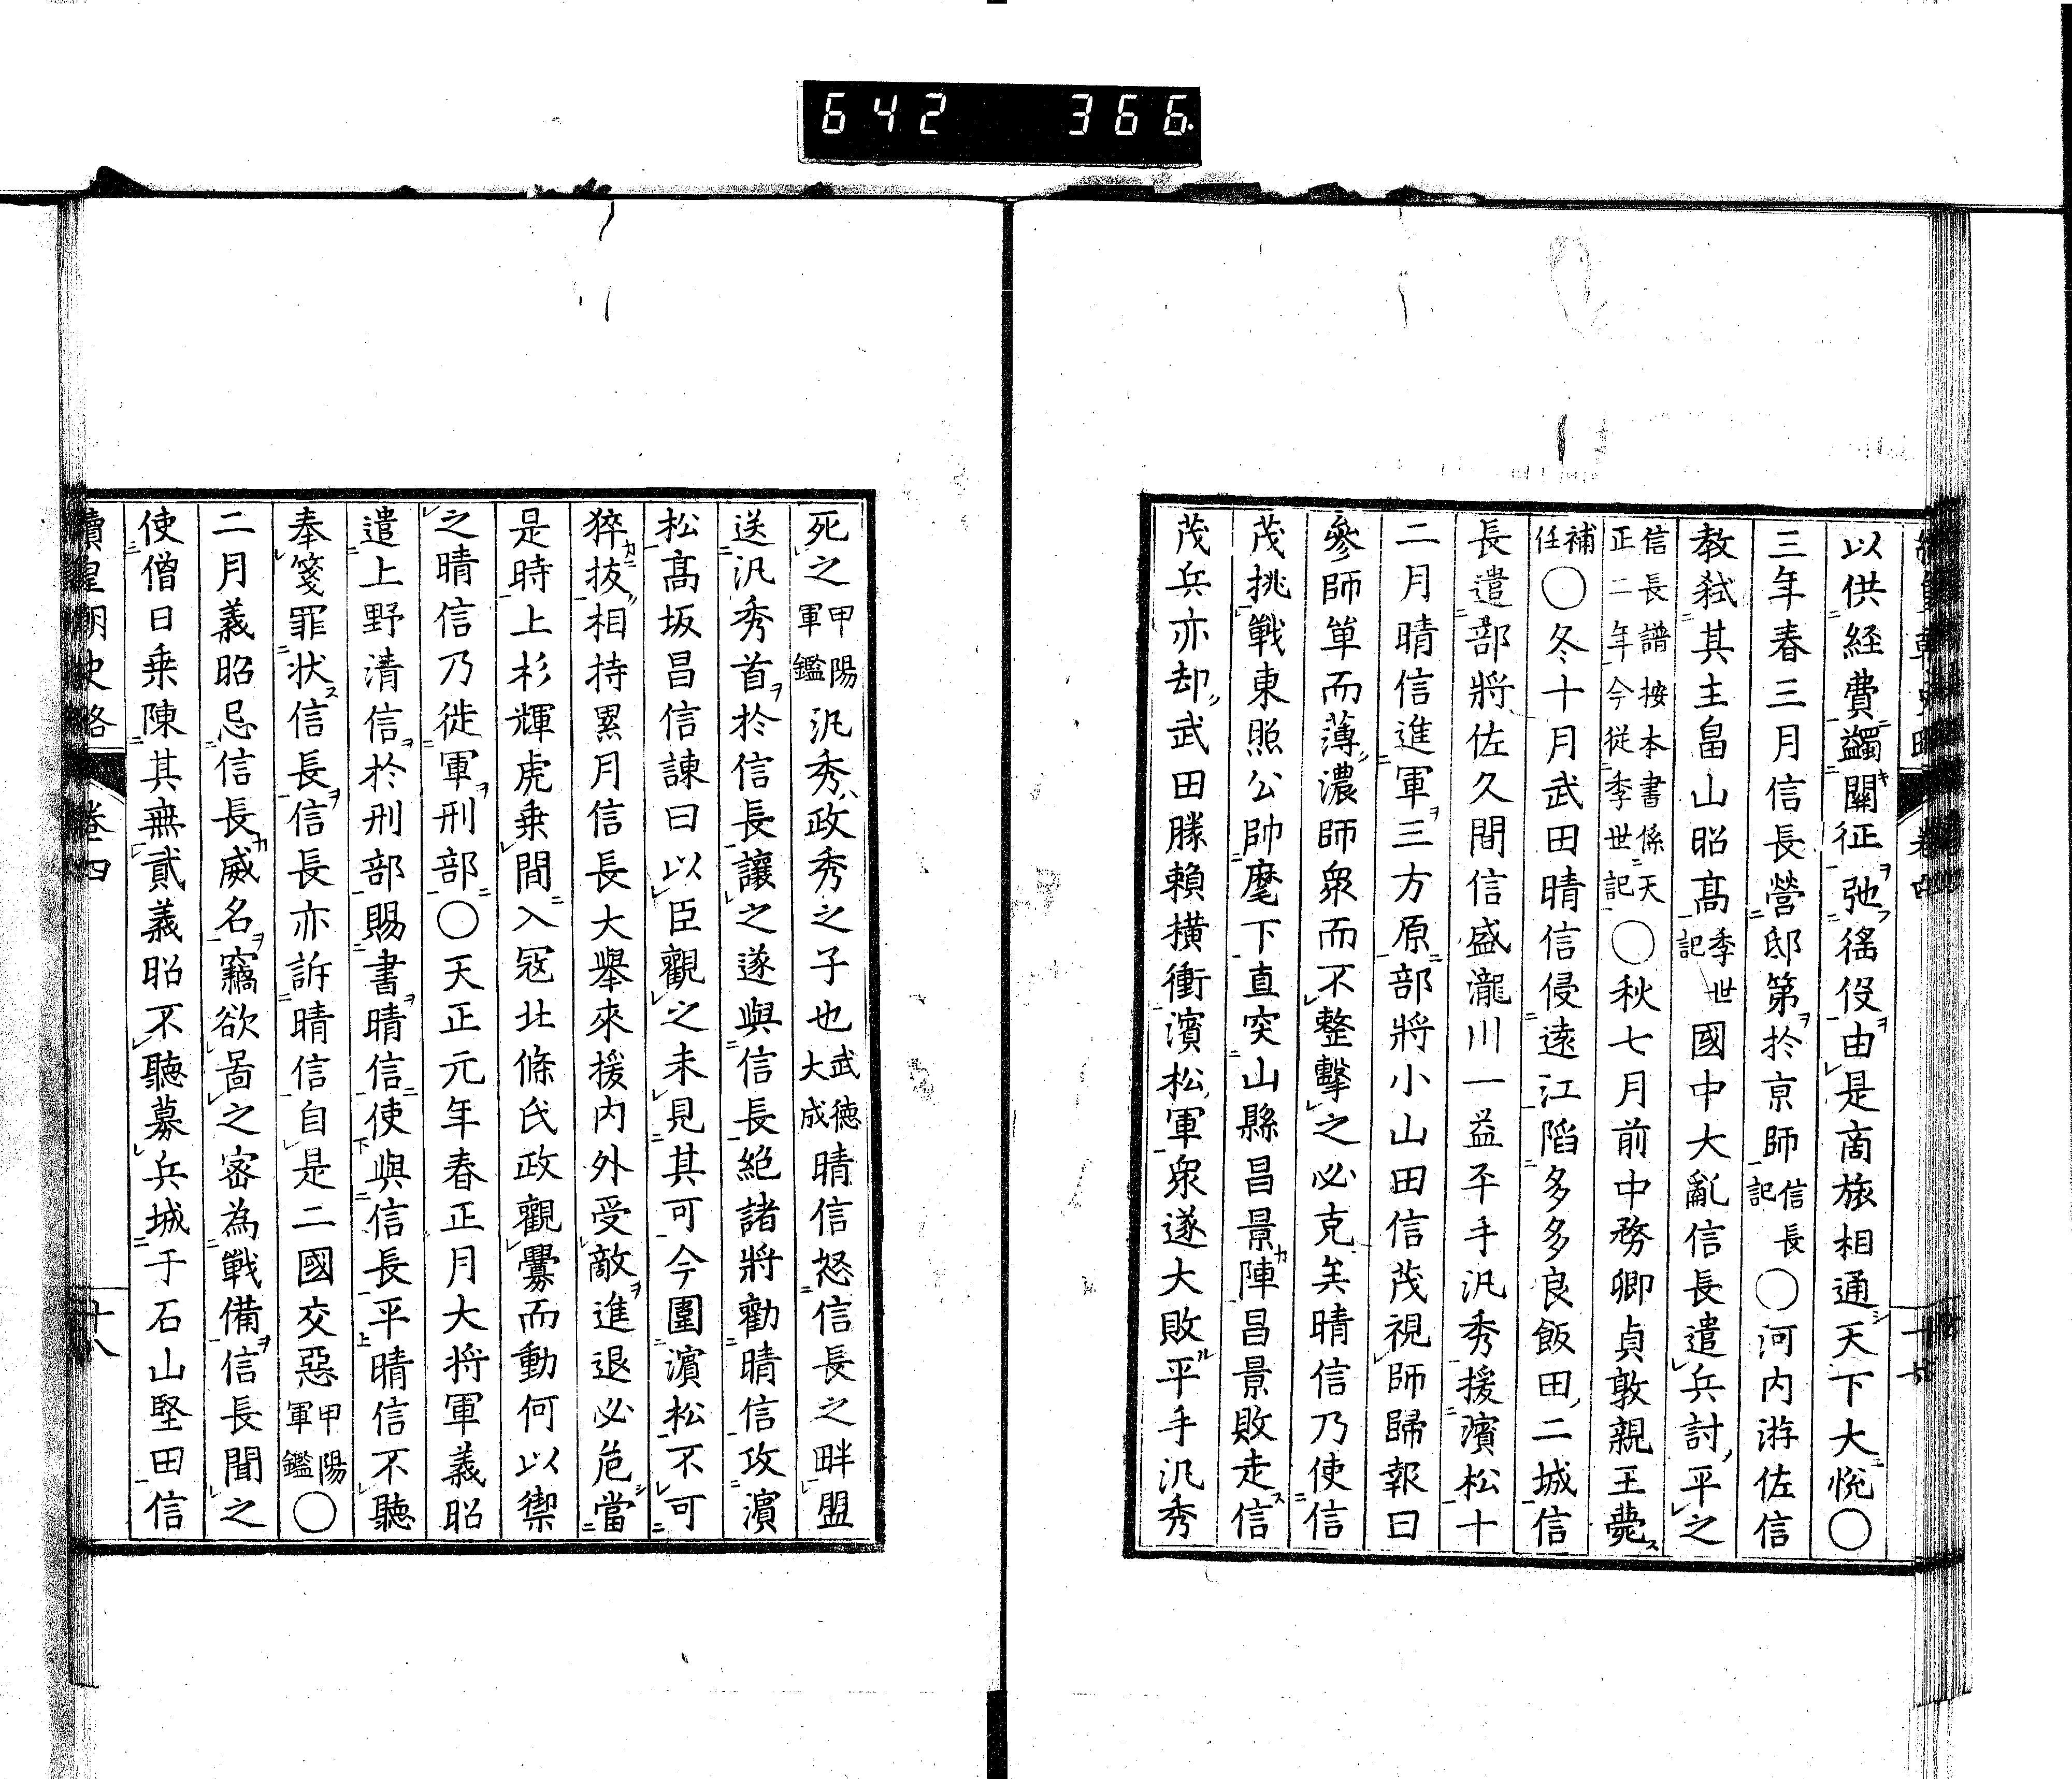 642 366
以供経費蠲關征弛徭役由是商旅相通天下大悅〇
三年春三月信長營邸第於京師信長記〇河内游佐信
教弑其主畠山昭高季世記國中大亂信長遣兵討平之
信長譜按本書係天正二年今從季世記〇秋七月前中務卿貞敦親王薨
補任〇冬十月武田晴信侵遠江陷多多良飯田二城信
長遣部將佐久間信盛瀧川一益平手汎秀援濱松十
二月晴信進軍三方原部將小山田信茂視師歸報曰
參師單而薄濃師衆而不整擊之必克矣晴信乃使信
茂挑戰東照公帥麾下直突山縣昌景陣昌景敗走信
茂兵亦却武田勝賴横衝濱松軍衆遂大敗平手汎秀
死之甲陽軍鑑汎秀政秀之子也武德大成晴信怒信長之畔盟
送汎秀首於信長讓之遂與信長絶諸將勸晴信攻濱
松高坂昌信諫曰以臣觀之未見其可今圍濱松不可
猝拔相持累月信長大擧來援内外受敵進退必危當
是時上杉輝虎乗間入冦北條氏政觀釁而動何以禦
之晴信乃徙軍刑部〇天正元年春正月大将軍義昭
遣上野清信於刑部賜書晴信使與信長平晴信不聽
奉箋罪状信長信長亦訴晴信自是二國交惡甲陽軍鑑〇
二月義昭忌信長威名竊欲啚之密為戰備信長聞之
使僧日乗陳其無貳義昭不聽募兵城于石山堅田信
續皇朝史略 卷四 十八